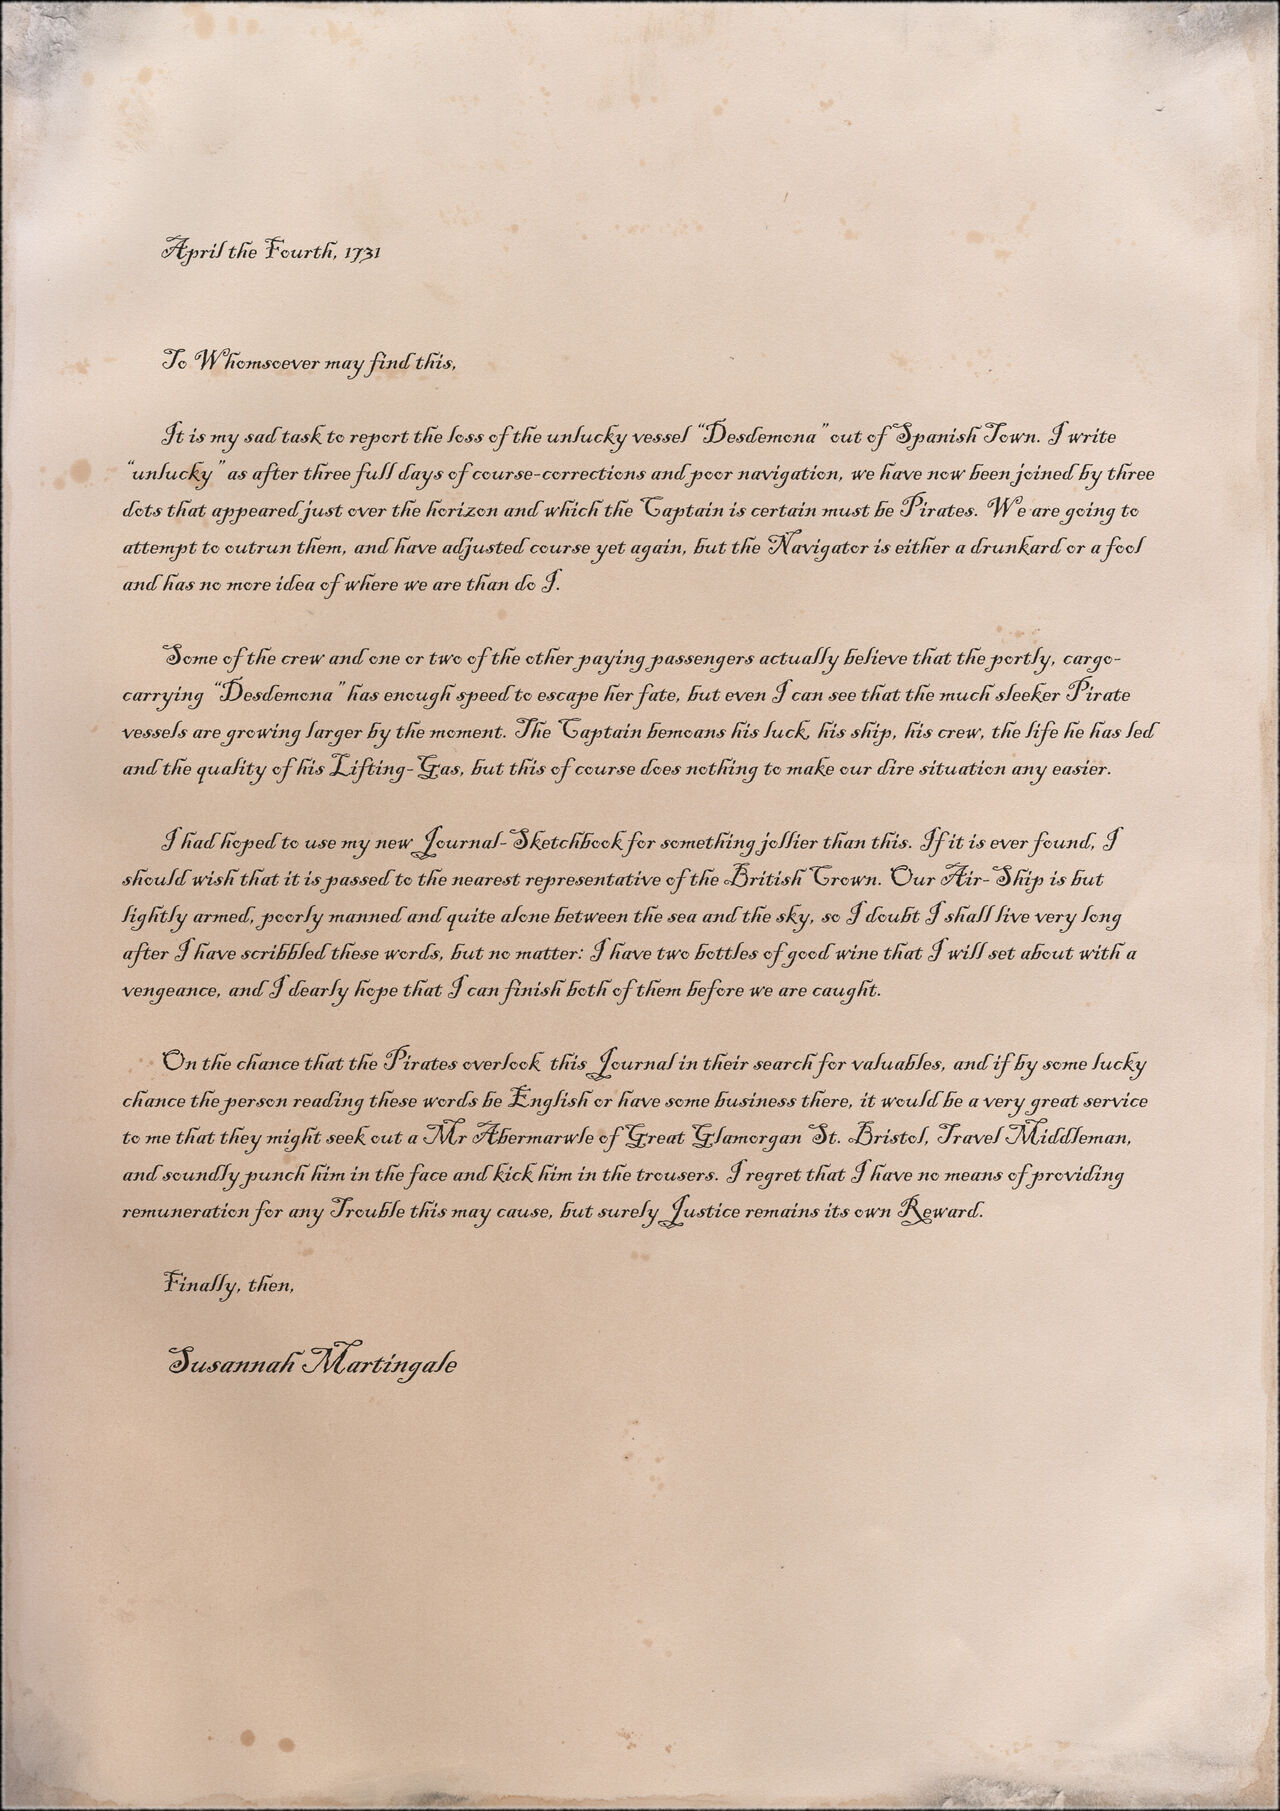 April the Fourth, 1731
To Whomsoever may find this,
It is my sad task to report the loss of the unlucky vessel “Desdemona” out of Spanish Town. I write
“unlucky” as after three full days of course-corrections and poor navigation, we have now been joined by three
dots that appeared just over the horizon and which the Captain is certain must be Pirates. We are going to
attempt to outrun them, and have adjusted course yet again, but the Navigator is either a drunkard or a fool
and has no more idea of where we are than do I.
Some of the crew and one or two of the other paying passengers actually believe that the portly, cargo-
carrying “Desdemona” has enough speed to escape her fate, but even I can see that the much sleeker Pirate
vessels are growing larger by the moment. The Captain bemoans his luck, his ship, his crew, the life he has led
and the quality of his Lifting-Gas, but this of course does nothing to make our dire situation any easier.
I had hoped to use my new Journal-Sketchbook for something jollier than this. If it is ever found, I
should wish that it is passed to the nearest representative of the British Crown. Our Air-Ship is but
lightly armed, poorly manned and quite alone between the sea and the sky, so I doubt I shall live very long
after I have scribbled these words, but no matter: I have two bottles of good wine that I will set about with a
vengeance, and I dearly hope that I can finish both of them before we are caught.
On the chance that the Pirates overlook this Journal in their search for valuables, and if by some lucky
chance the person reading these words be English or have some business there, it would be a very great service
to me that they might seek out a Mr Abermarwle of Great Glamorgan St. Bristol, Travel Middleman,
and soundly punch him in the face and kick him in the trousers. I regret that I have no means of providing
remuneration for any Trouble this may cause, but surely Justice remains its own Reward.
Finally, then,
Susannah Martingale